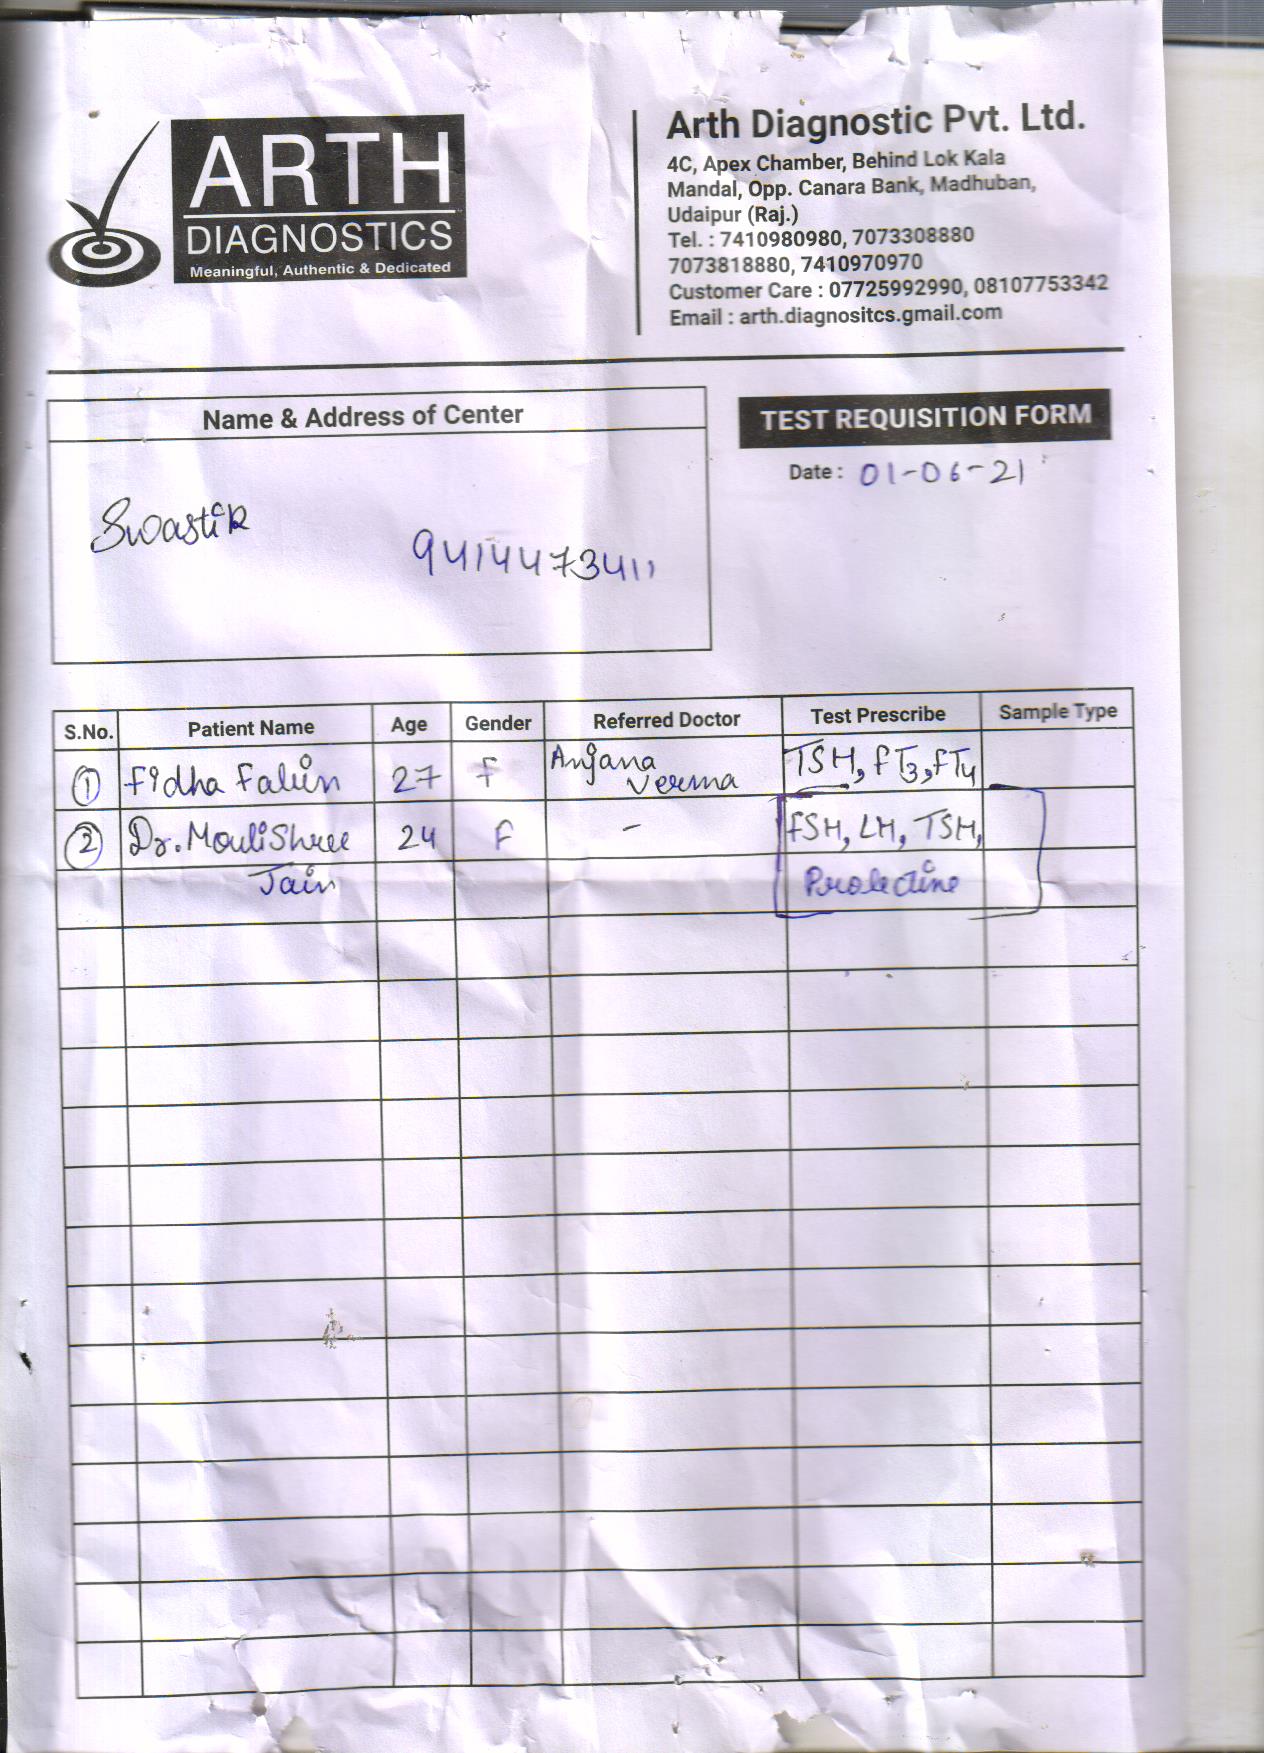 ARTH
DIAGNOSTICS
Meaningful, Authentic & Dedicated
Arth Diagnostic Pvt. Ltd.
4C, Apex Chamber, Behind Lok Kala
Mandal, Opp. Canara Bank, Madhuban,
Udaipur (Raj.)
Tel. : 7410980980, 7073308880
7073818880, 7410970970
Customer Care : 07725992990, 08107753342
Email : arth.diagnositcs.gmail.com
Name & Address of Center
Swastik
9414473411
TEST REQUISITION FORM
Date : 01-06-21
S.No. Patient Name Age Gender Referred Doctor Test Prescribe Sample Type
1 Fidha 27 F Anjana Verma TSH, FT3, FT4
2 Dr. MouliShree 24 F - FSH, LH, TSH,
Jain Prolectine